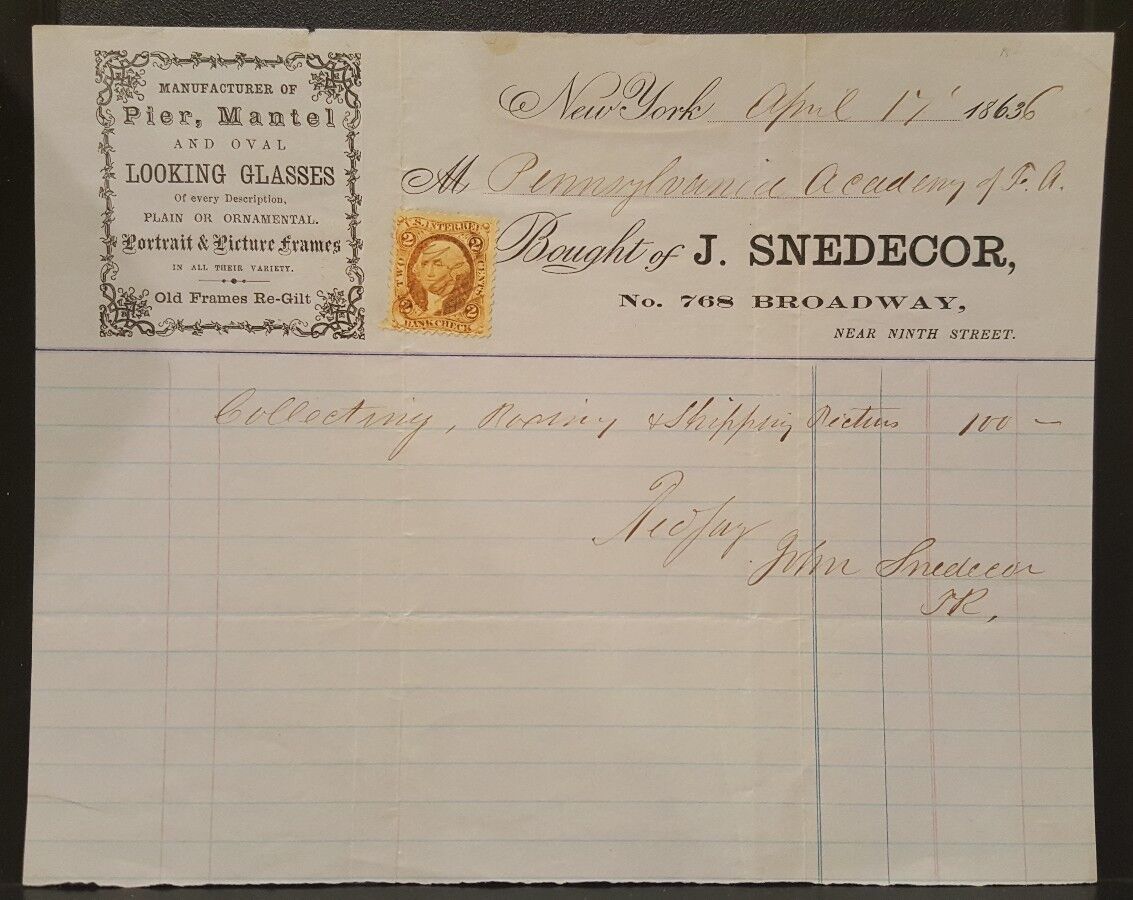 MANUFACTURER OF
Pier, Mantel
AND OVAL
LOOKING GLASSES
Of every Description,
PLAIN OR ORNAMENTAL.
Portrait & Picture Frames
IN ALL THEIR VARIETY.
Old Frames Re-Gilt
New York April 17 18636
M Pennsylvania Academy of F. A.
Bought of J. SNEDECOR,
No. 768 BROADWAY,
NEAR NINTH STREET.
U.S. INTER. REV.
2 2
TWO CENTS
2 2
BANK CHECK
Collecting, Boxing & Shipping Pictures 100 —
John Snedecor